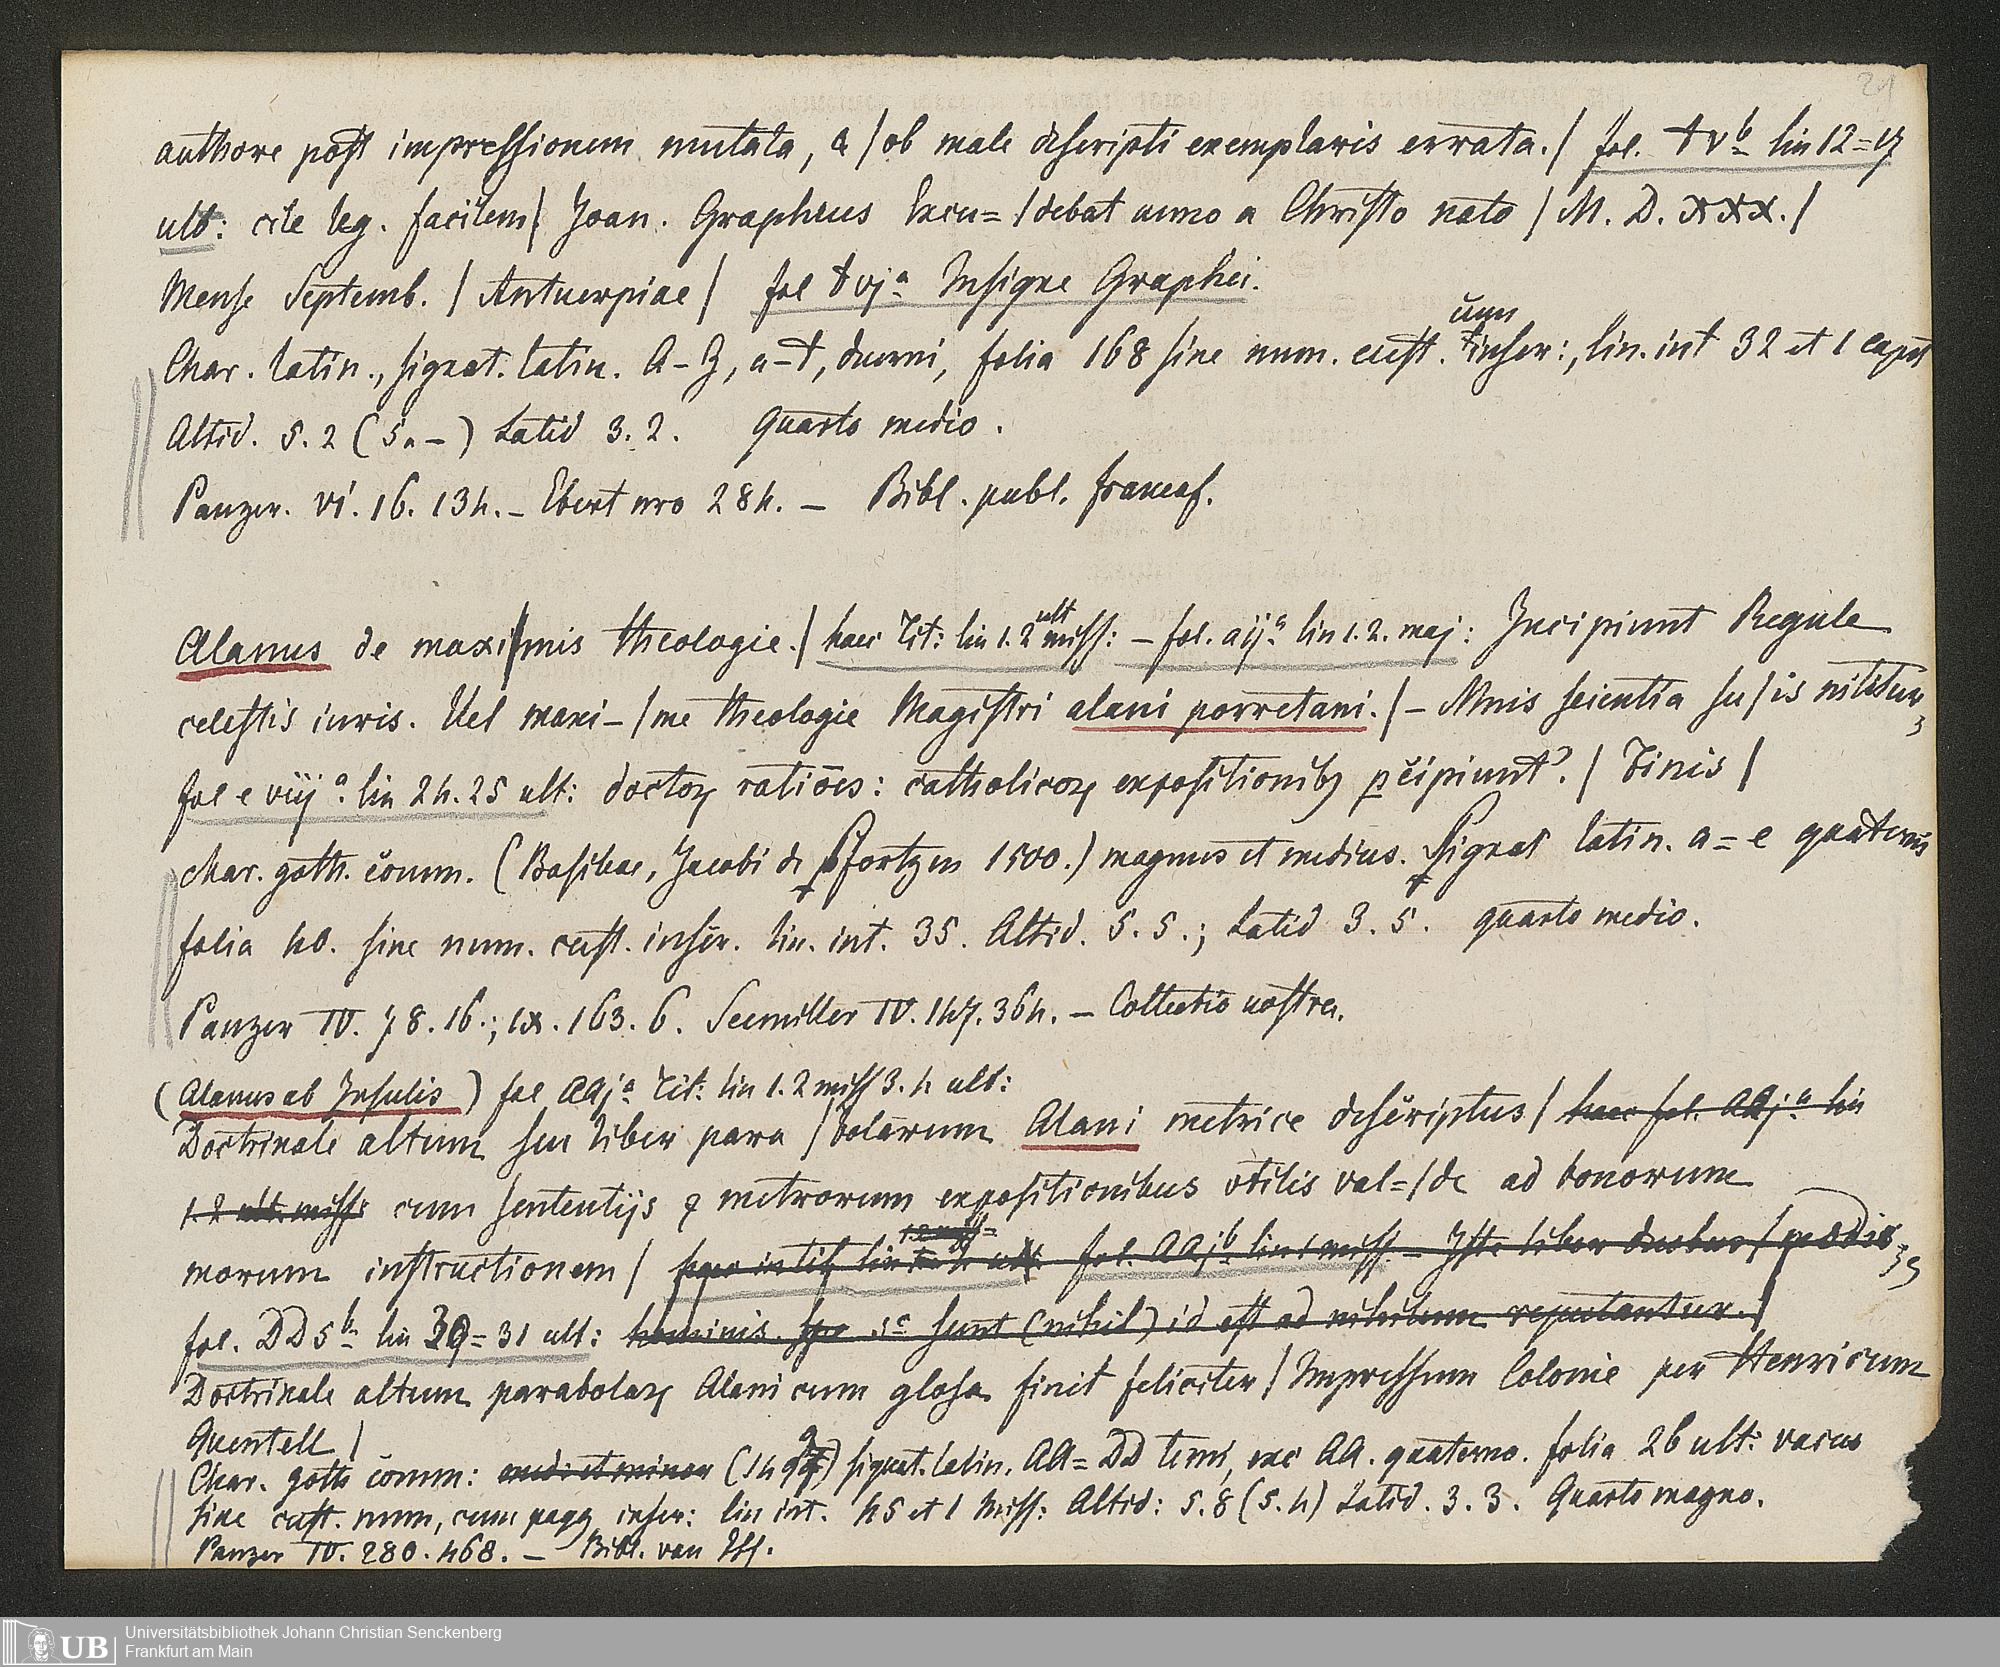 21
authore post impressionem mutata, & / ob male descripti exemplaris errata. / fol. t v b lin 12 = 17
ult: cite leg. facilem / Joan. Grapheus Excu= / debat anno a Christo nato / M. D. XXX. /
Mense Septemb. / Antuerpiae / fol t vj a Insigne Graphei.
Char. latin., signat. latin. A-Z, a-t, duerni, folia 168 sine num. cust. cum inser:, lin. int 32 et 1 caput
Altid. 5.2 (5.-) Latid 3.2. Quarto medio.
Panzer. VI. 16. 134. – Ebert nro 284. – Bibl. publ. francof.
Alanus de maxi/mis theologie. / haec Tit: lin 1.2 ult miss: – fol. a ij a lin 1.2. maj: Incipiunt Regule
celestis iuris. Vel maxi- / me theologie Magistri alani porretani. / – Mnis scientia su / is nititur
fol e viij a lin 24.25 ult: doctoꝝ ratiões: catholicoꝝ expositionibꝫ p̄cipiunt. / Finis /
Char. goth. comm. (Basileae, Jacobi de Pfortzen 1500.) magnus et medius. Signat latin. a = e quaterni
folia 40. sine num. cust. inser. lin. int. 35. Altid. 5.5.; Latid 3.5. quarto medio.
Panzer IV. 78. 16.; IX. 163. 6. Seemiller IV. 147. 364. – Collectio nostra.
(Alanus ab Insulis) fol AA j a Tit: lin 1.2 miss 3.4 ult:
Doctrinale altum seu liber para / bolarum Alani metrice descriptus / haec fol. AA j a lin
1.2 ult. miss: cum sententijs & metrorum expositionibus utilis val= / de ad bonorum
morum instructionem / fol. AA j b lin 1 miss. – Iste liber duobus / modis
fol. DD 5 b lin 30 = 31 ult: hominis. sunt (nihil) id est ad nihilum reputantur. /
Doctrinale altum parabolaꝝ Alani cum glosa finit feliciter / Impressum Colonie per Henricum
Quentell /
Char. goth comm: medi et minor (149 ) signat. latin. AA = DD terni, exc AA. quaterno. folia 26 ult: vacuo
sine cust. num, cum pagg inser: lin int. 45 et 1 miss: Altid: 5.8 (5.4) Latid. 3.3. Quarto magno.
Panzer IV. 280. 468. – Bibl. van Ess.
UB
Universitätsbibliothek Johann Christian Senckenberg
Frankfurt am Main